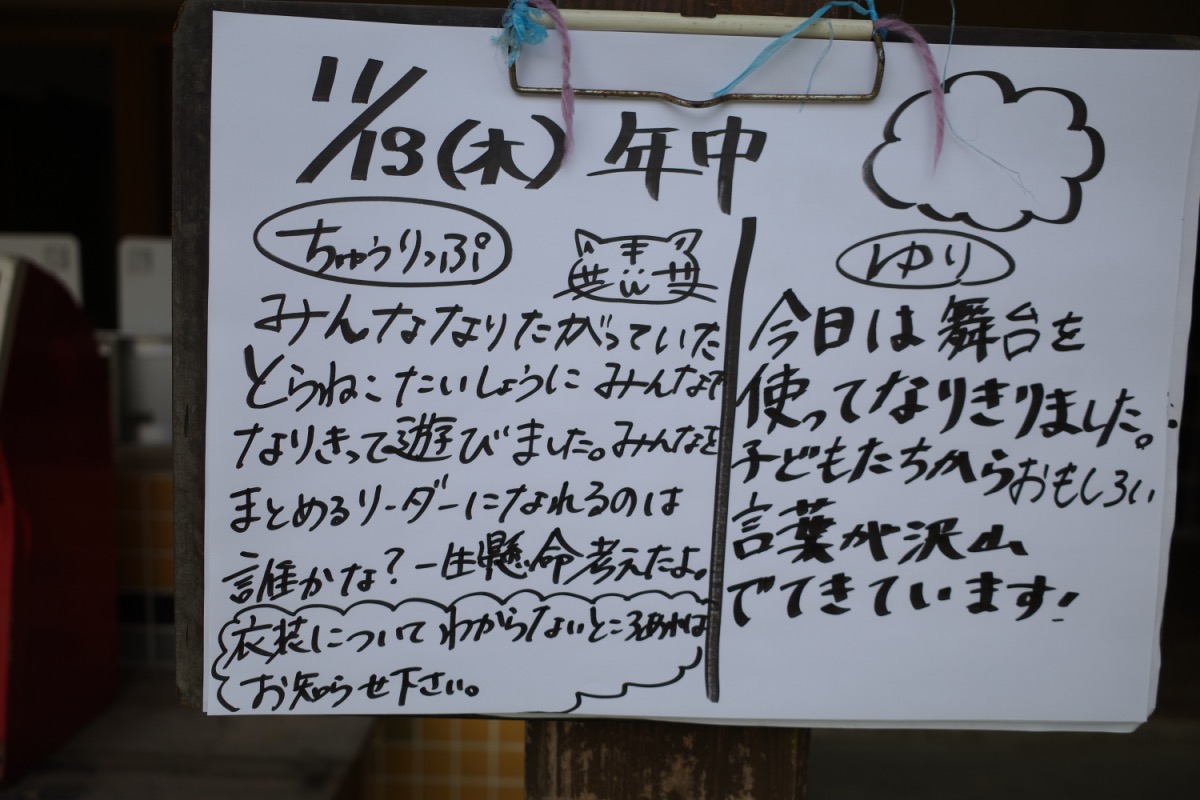 11/13(木) 年中
ちゅうりっぷ
みんななりたがっていた
とらねこたいしょうにみんなで
なりきって遊びました。みんなを
まとめるリーダーになれるのは
誰かな?一生懸命考えたよ。
衣装についてわからないところあれば
お知らせ下さい。
ゆり
今日は舞台を
使ってなりきりました。
子どもたちからおもしろい
言葉が沢山
でてきています!